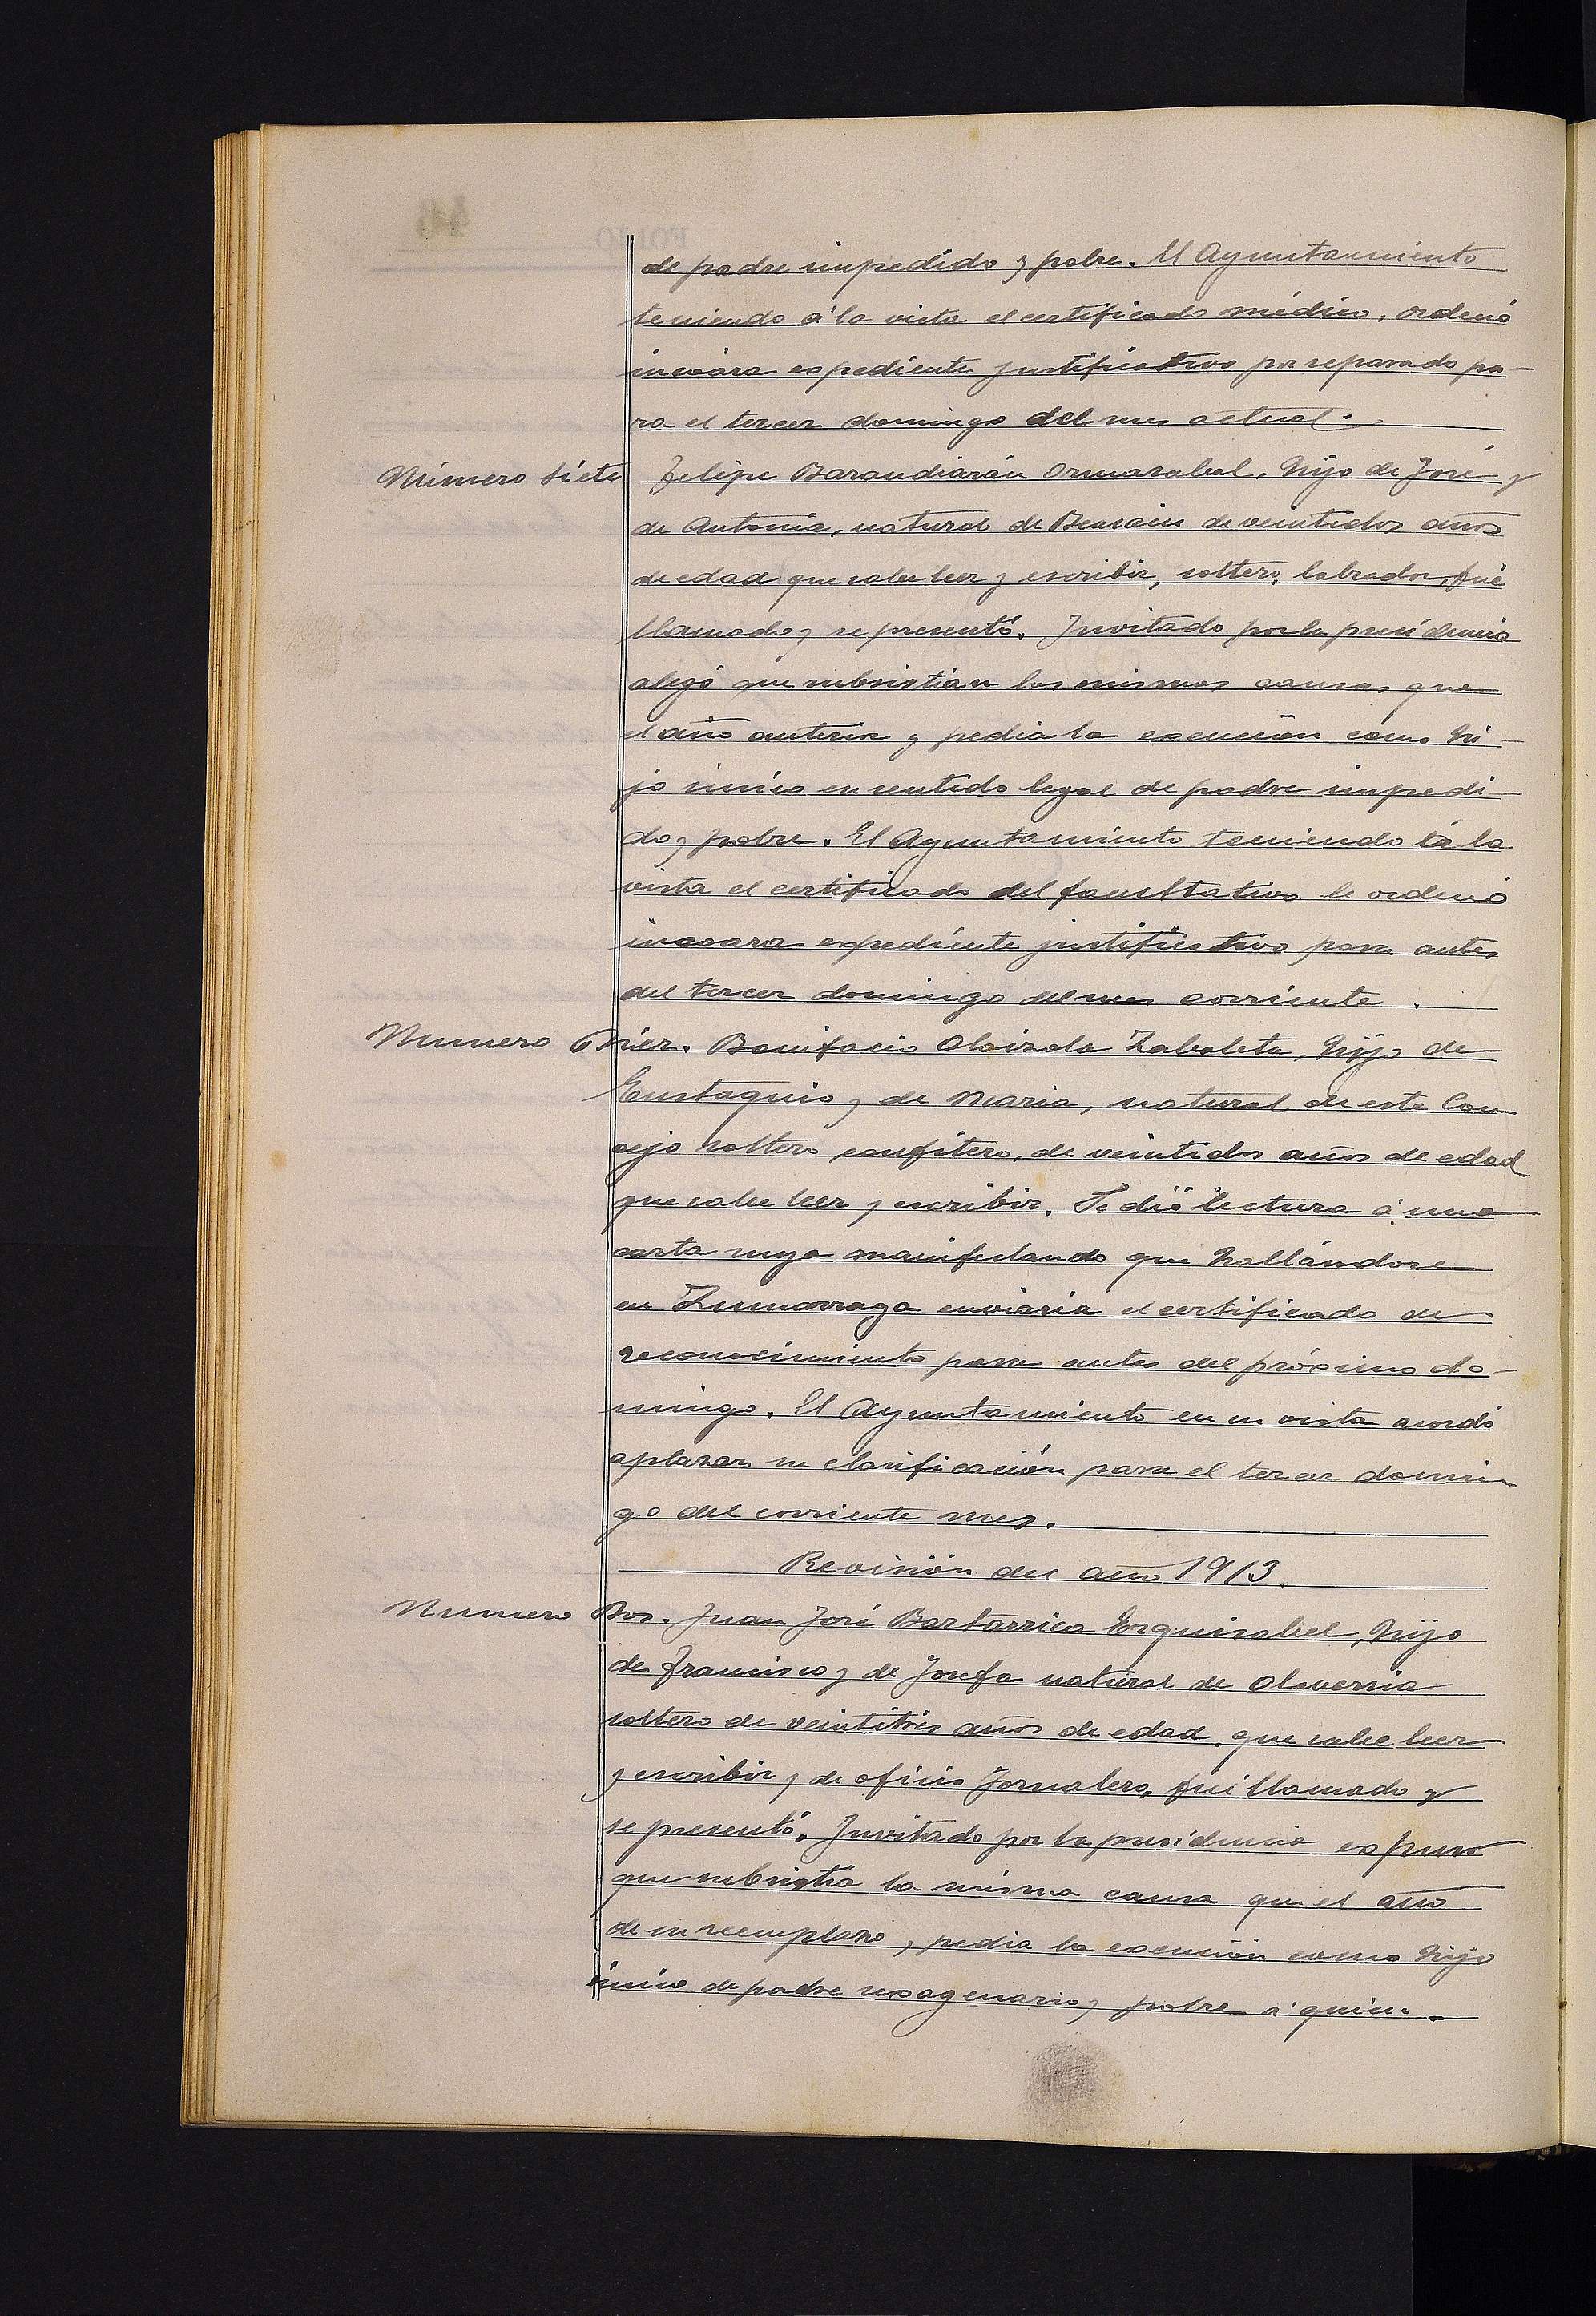 de padre impedido y pobre. El Ayuntamiento
teniendo á la vista el certificado médico, ordenó
incoára expediente justificativo por separado pa-
ra el tercer domingo del mes actual.
Número siete Felipe Barandiarán Ormazabal, hijo de José y
de Antonia, natural de Beasain de veintidos años
de edad que sabe leer y escribir, soltero, labrador, fué
llamado y se presentó. Invitado por la presidencia
alegó que subsistian las mismas causas que
el año anterior y pedia la exención como hi-
jo único en sentido legal de padre impedi-
do y pobre. El Ayuntamiento teniendo á la
vista el certificado del facultativo le ordenó
incoara expediente justificativo para antes
del tercer domingo del mes corriente.
Numero Diez. Bonifacio Oloizola Zabaleta, hijo de
Eustaquio y de Maria, natural de este Con
cejo soltero confitero, de veintidos años de edad
que sabe leer y escribir. Se dió lectura á una
carta suya manifestando que hallándose
en Zumarraga enviaria el certificado de
reconocimiento para antes del próximo do-
mingo. El Ayuntamiento en su vista acordó
aplazar su clasificación para el tercer domin
go del corriente mes.
Revisión del año 1913.
Numero Dos. Juan José Bartarrica Ezquizabel, hijo
de Francisco y de Josefa natural de Olaverria
soltero de veintitrés años de edad, que sabe leer
y escribir y de oficio Jornalero, fué llamado y
se presentó. Invitado por la presidencia expuso
que subsistia la misma causa que el año
de su reemplazo, y pedia la exención como hijo
único de padre sexagenario y pobre á quien